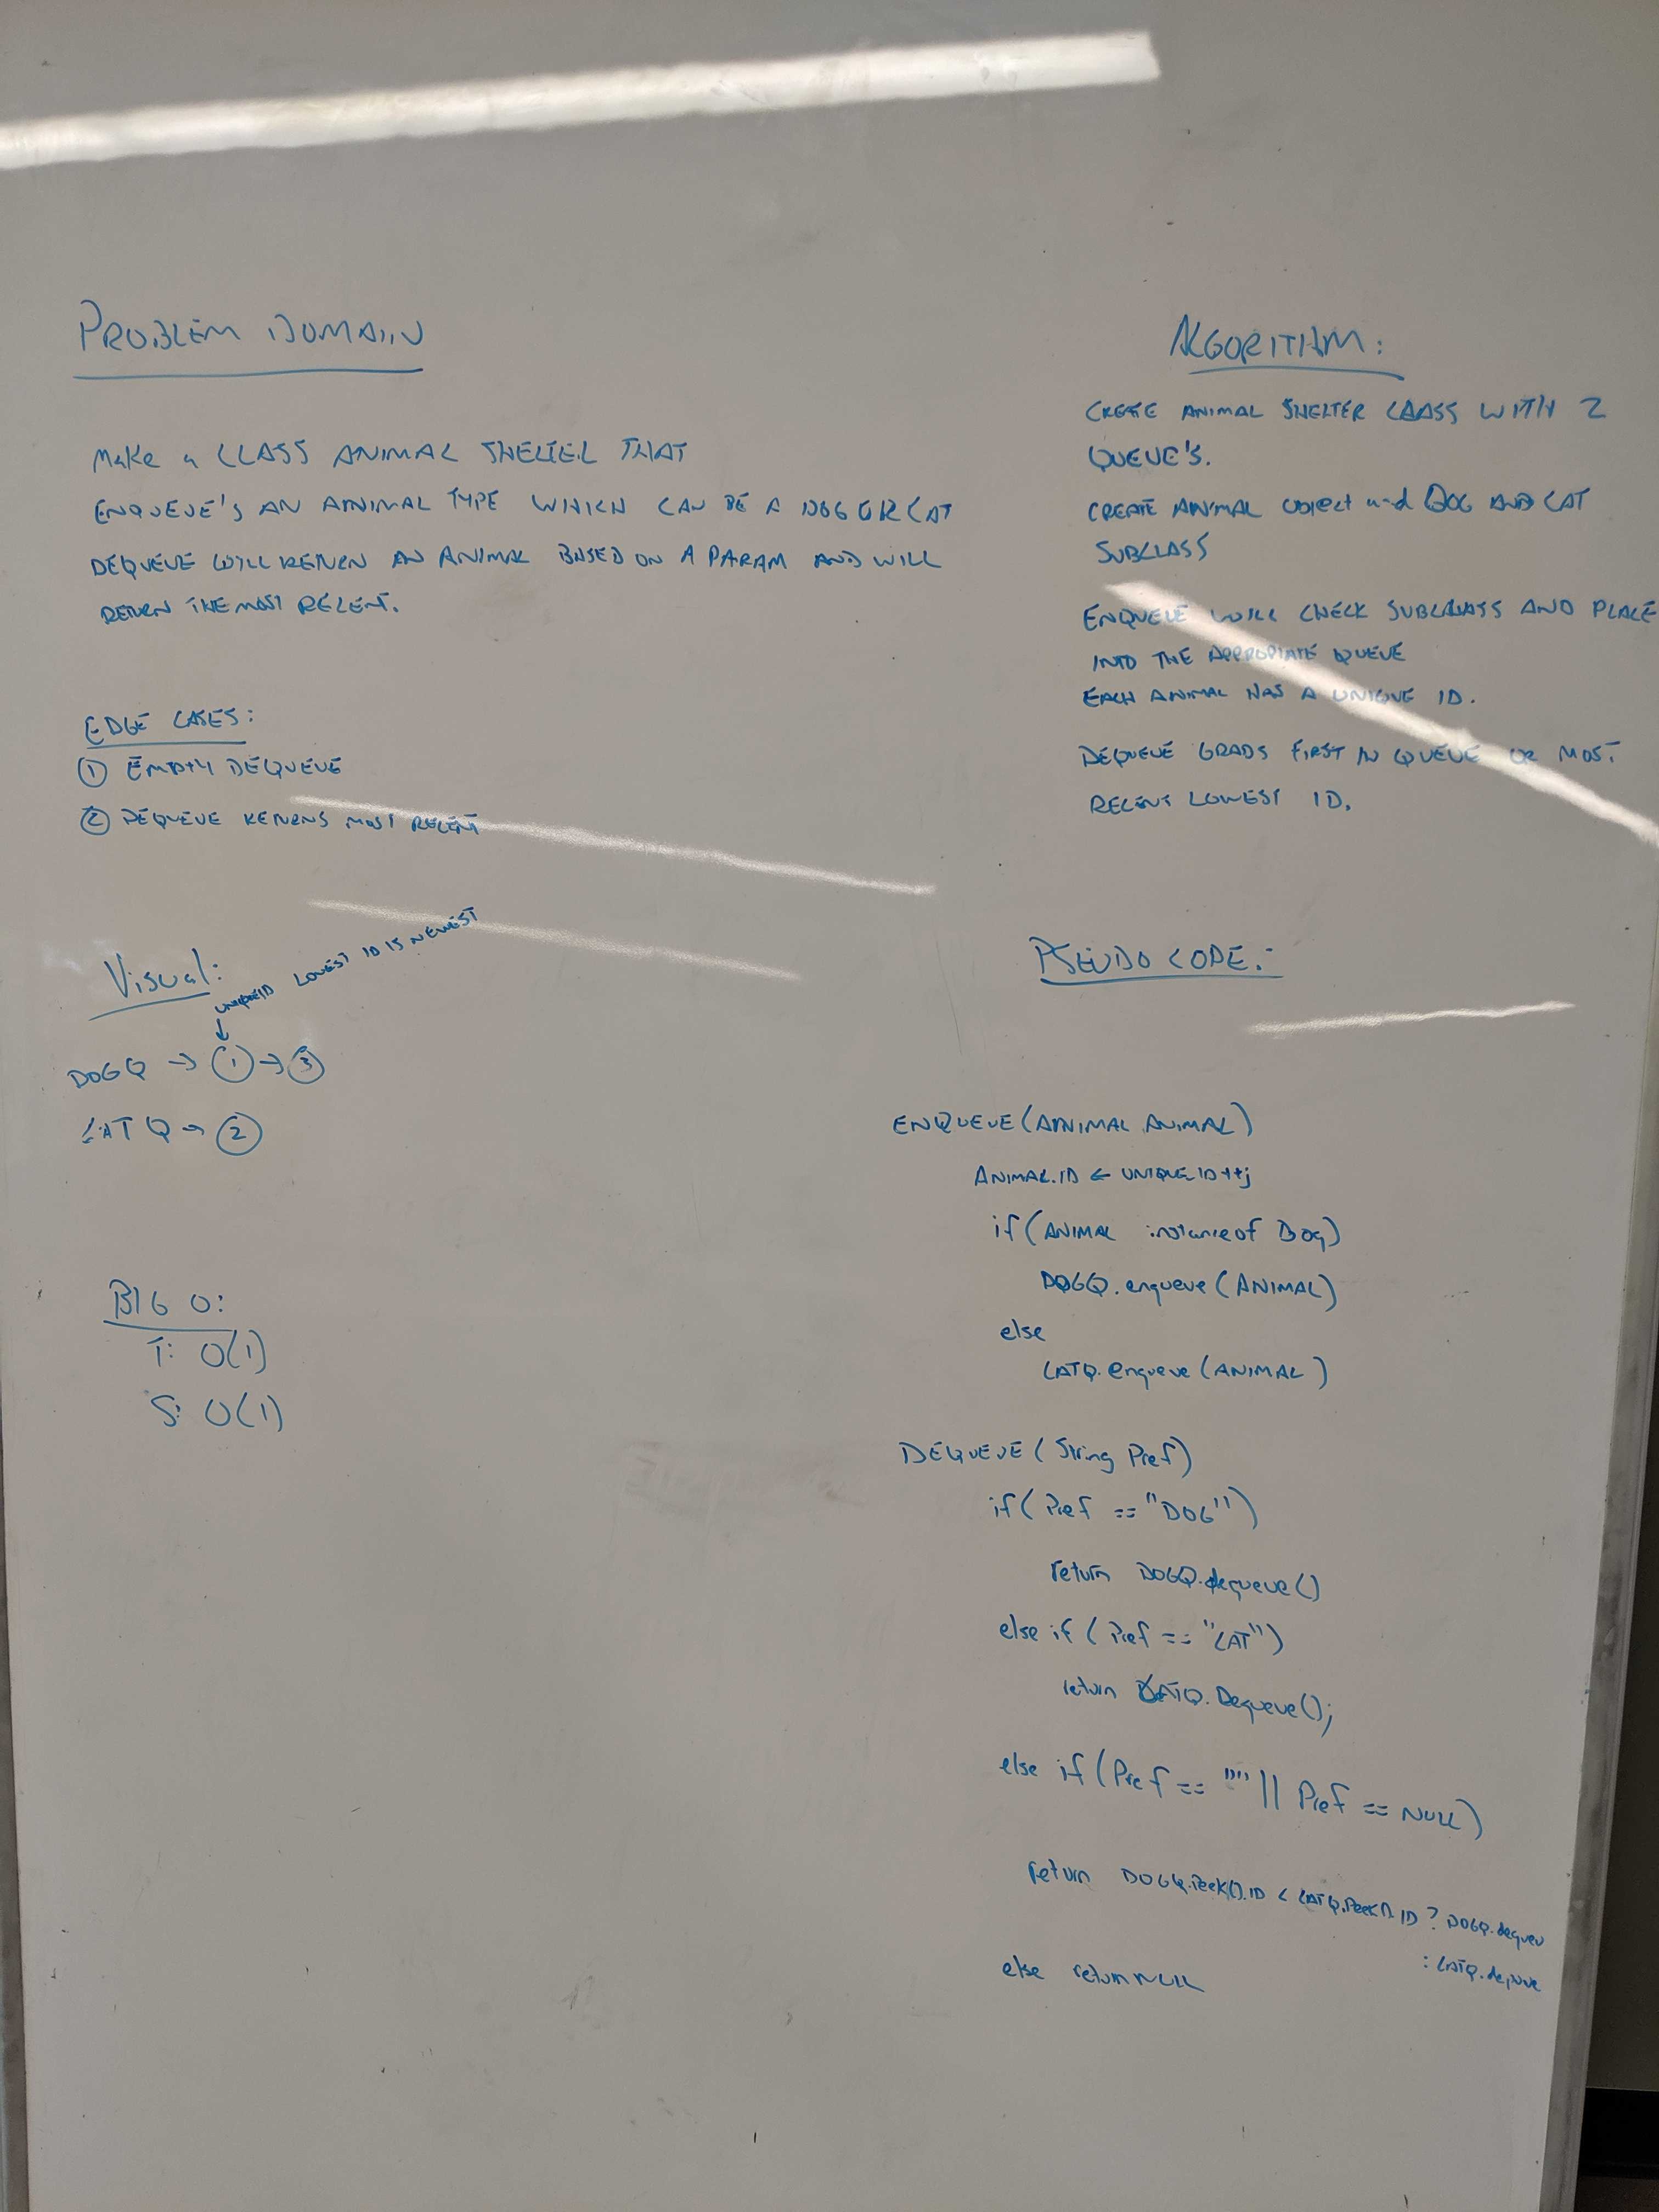 PROBLEM DOMAIN
Make a CLASS ANIMAL SHELTER THAT
ENQUEUE'S AN ANIMAL TYPE WHICH CAN BE A DOG OR CAT
DEQUEUE WILL RETURN AN ANIMAL BASED ON A PARAM AND WILL
RETURN THE MOST RECENT.
EDGE CASES:
① EMPTY DEQUEUE
② DEQUEUE RETURNS MOST RECENT
Visual:
UNIQUE ID LOWEST ID IS NEWEST
↓
DOGQ → ① → ③
CATQ → ②
BIG O:
T: O(1)
S: O(1)
ALGORITHM:
CREATE ANIMAL SHELTER CLASS WITH 2
QUEUE'S.
CREATE ANIMAL Object and DOG AND CAT
SUBCLASS
ENQUEUE WILL CHECK SUBCLASS AND PLACE
INTO THE APPROPIATE QUEUE
EACH ANIMAL HAS A UNIQUE ID.
DEQUEUE GRABS FIRST IN QUEUE OR MOST
RECENT LOWEST ID.
PSEUDO CODE:
ENQUEUE(ANIMAL ANIMAL)
ANIMAL.ID ← UNIQUE ID++;
if(ANIMAL instanceof Dog)
DOGQ.enqueue(ANIMAL)
else
CATQ.enqueue(ANIMAL)
DEQUEUE(String Pref)
if(Pref == "DOG")
return DOGQ.dequeue()
else if(Pref == "CAT")
return CATQ.Dequeue();
else if(Pref == "" || Pref == NULL)
return DOGQ.Peek().ID < CATQ.Peek().ID ? DOGQ.dequeu
: CATQ.dequeue
else return NULL